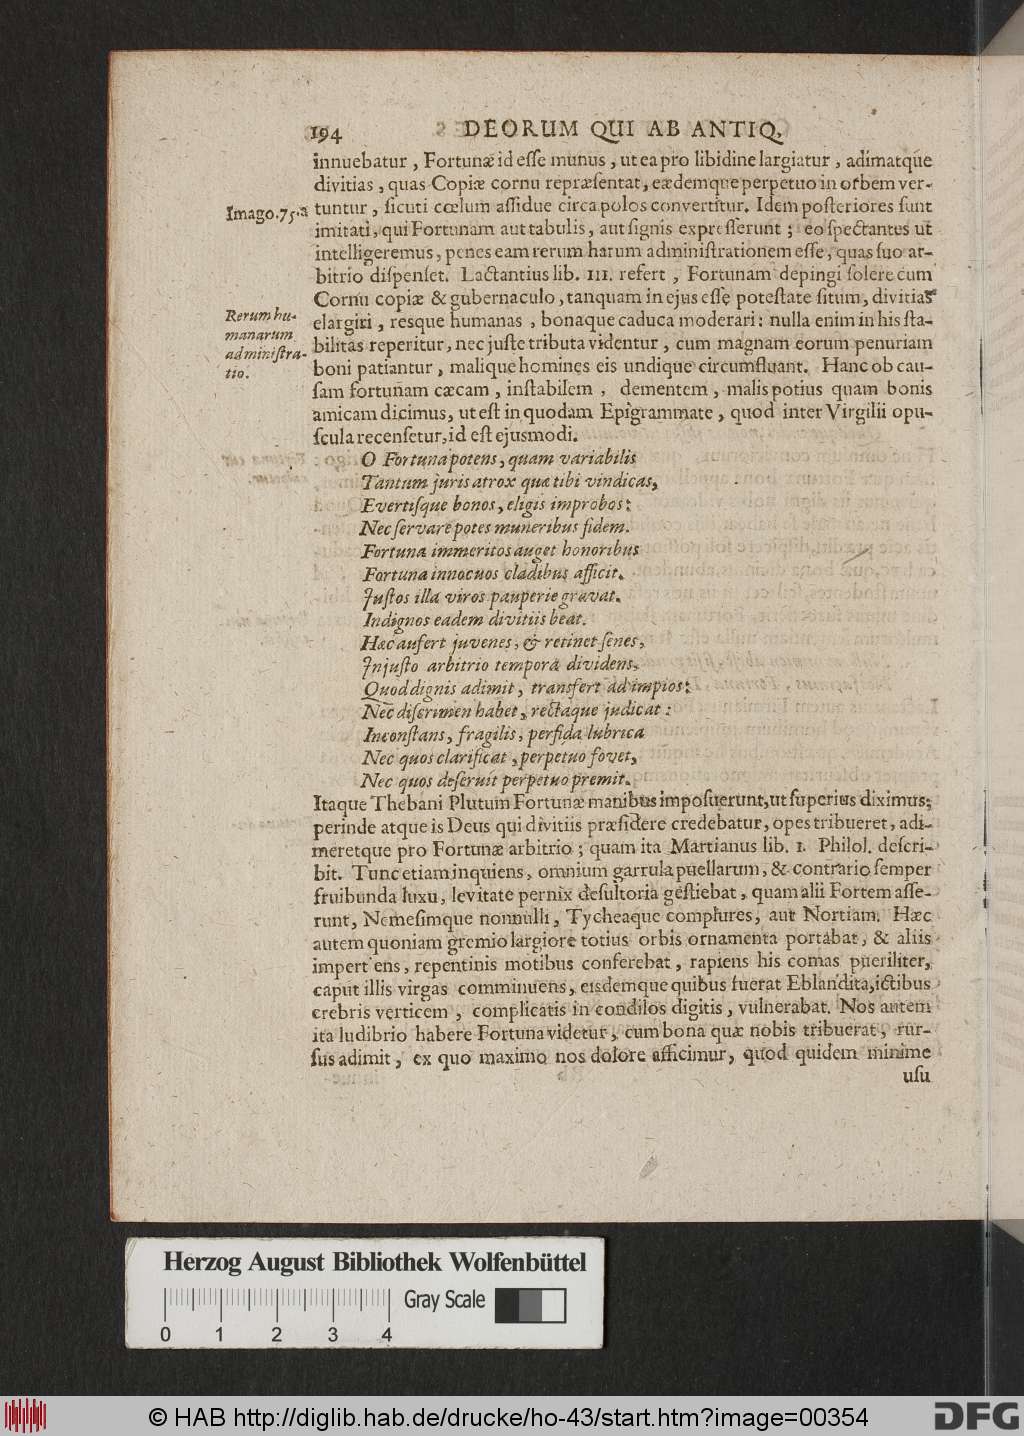 194 DEORUM QUI AB ANTIQ.
innuebatur, Fortunæ id eſſe munus, ut ea pro libidine largiatur, adimatque
divitias, quas Copiæ cornu repræſentat, eædemque perpetuo in orbem ver-
Imago. 75. a
tuntur, ſicuti cœlum aſſidue circa polos convertitur. Idem poſteriores ſunt
imitati, qui Fortunam aut tabulis, aut ſignis expreſſerunt; eo ſpectantes ut
intelligeremus, penes eam rerum harum adminiſtrationem eſſe, quas ſuo ar-
bitrio diſpenſet. Lactantius lib. III. refert, Fortunam depingi ſolere cum
Cornu copiæ & gubernaculo, tanquam in ejus eſſe poteſtate ſitum, divitias
Rerum hu-
manarum
adminiſtra-
tio.
elargiri, resque humanas, bonaque caduca moderari: nulla enim in his ſta-
bilitas reperitur, nec juſte tributa videntur, cum magnam eorum penuriam
boni patiantur, malique homines eis undique circumfluant. Hanc ob cau-
ſam fortunam cæcam, inſtabilem, dementem, malis potius quam bonis
amicam dicimus, ut eſt in quodam Epigrammate, quod inter Virgilii opu-
ſcula recenſetur, id eſt ejusmodi.
O Fortuna potens, quam variabilis
Tantum juris atrox quæ tibi vindicas,
Evertiſque bonos, eligis improbos:
Nec ſervare potes muneribus fidem.
Fortuna immeritos auget honoribus
Fortuna innocuos cladibus afficit.
Juſtos illa viros pauperie gravat.
Indignos eadem divitiis beat.
Hæc aufert juvenes, & retinet ſenes,
Injuſto arbitrio tempora dividens.
Quod dignis adimit, transfert ad impios:
Nec diſcrimen habet, rectaque judicat:
Inconſtans, fragilis, perfida lubrica
Nec quos clarificat, perpetuo fovet,
Nec quos deſeruit perpetuo premit.
Itaque Thebani Plutum Fortunæ manibus impoſuerunt, ut ſuperius diximus;
perinde atque is Deus qui divitiis præſidere credebatur, opes tribueret, adi-
meretque pro Fortunæ arbitrio; quam ita Martianus lib. 1. Philol. deſcri-
bit. Tunc etiam inquiens, omnium garrula puellarum, & contrario ſemper
fruibunda luxu, levitate pernix deſultoria geſtiebat, quam alii Fortem aſſe-
runt, Nemeſimque nonnulli, Tycheaque complures, aut Nortiam. Hæc
autem quoniam gremio largiore totius orbis ornamenta portabat, & aliis
impert ens, repentinis motibus conferebat, rapiens his comas pueriliter,
caput illis virgas comminuens, eisdemque quibus fuerat Eblandita, ictibus
crebris verticem, complicatis in condilos digitis, vulnerabat. Nos autem
ita ludibrio habere Fortuna videtur, cum bona quæ nobis tribuerat, rur-
ſus adimit, ex quo maximo nos dolore afficimur, quod quidem minime
uſu
Herzog August Bibliothek Wolfenbüttel
Gray Scale
0 1 2 3 4
© HAB http://diglib.hab.de/drucke/ho-43/start.htm?image=00354
DFG